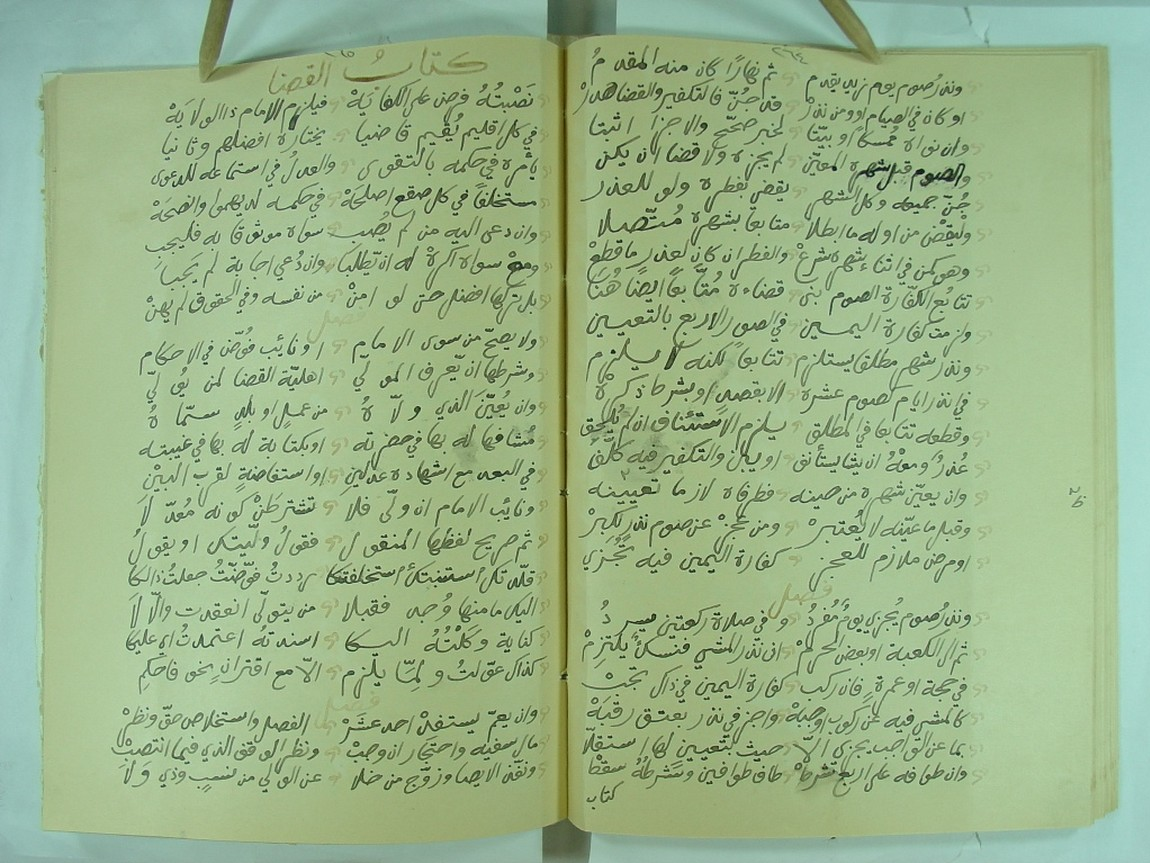 ٢٦٤
ونذر صوم يوم زيد يقدم ثم نهارًا كان منه المقدم
او كان في الصيام او ومن نذر قد جُنّ فالتكفير والقضا هدر
وان نواه مُمسكا او بيّتا لخبر صحّح والاجزا اثبتا
والصوم قبل شهره المعيّن لم يجزه ولا قضا ان يكن
جُنّ جميعه وكل الشهر يقضى بفطره ولو للعذر
وليقض من اوله ما ابطلا متابعا بشهره مُتّصلا
وهو كمن في اثناء شهره شرع والفطر ان كان لعذر ما قطع
تتابُع الكفّارة الصوم بنى قضاءه مُتابعًا ايضًا هُنا
ولزمت كفارة اليمين في الصور الاربع بالتعيين
ونذر شهر مطلقا يستلزم تتابعا لكنه لا يلزم
في نذر ايام كصوم عشره الا بقصد او بشرط ذكره
وقطعه تتابعا في المطلق يلزم الاستئناف ان لم يُلحق
عُذرٌ ومعْهُ ان يشا يستأنف او يبن والتكفير فيه كلّفا
وان يعيّن شهره من حينه فطرفاه لازما تعيينه
وقبل ما عيّنه لا يُعتبر ومن عجز عن صوم نذر لكبر
او مرض ملازم للعجز كفارة اليمين فيه تُجزي
فصل
ونذر صوم يُجزي يومٌ مُفردُ وفي صلاة ركعتين يسردُ
ثم الى الكعبة او بعض الحرم ان نذر المشي فنسكًا يلتزم
في حجة او عمرة فان ركب كفارة اليمين في ذاك تجب
كالمشي فيه عن ركوب اوجبه واجز في نذر بعتق رقبه
بما عن الواجب يجزي الا حيث بتعيين لها استقلّا
وان طوافه على اربع شرط طاف طوافين وشرطهُ سقط
كتاب
٢٦٥
كتابُ القضا
نَصْبتُهُ فرض على الكفايَهْ فيلزم الامام ذا الولايَهْ
في كل اقليم يُقيم قاضيا يختاره افضلهم وثانيا
يأمره في حكمه بالتقوى والعدلُ في استماعه للدعوى
مستخلفًا في كل صقع اصلحَهْ في حكمه لديهموا وانصحَهْ
وان دعى اليه من لم يُصب سواه موثوقا به فليجب
ومع سواه اكره له ان يطلبا وان دُعي اجابة لم يَجبا
بل تركها افضل حتى لو امن من نفسه وفي الحقوق لم يهن
فصل
ولا يصحّ من سوى الامام او نائب فُوّض في الاحكام
وشرطها ان يعرف المولي اهليّة القضا لمن يُولّي
وان يُعيّن الذي ولّاهُ من عمل او بلد سمّاهُ
مُشافها له بها في حضرته او بكتابة له بها في غيبته
في البعد مع اشهاده عدلين او استفاضةٍ لقرب البين
ونائب الامام ان ولّى فلا تشترطن كونه مُعدّلا
ثم صريح لفظها المنقولُ فقول ولّيتك او يقولُ
قلّدتك استنبتك استخلفتكا رددتُ فوّضتُ جعلتُ ذالكا
اليك ما منها وُجد فقبلا من يتولّى انعقدت والّا لا
كناية وكلتُهُ اليكا اسندته اعتمدتُ اي عليكا
كذاك عوّلتُ ولمّا يلزم الّا مع اقترانٍ بنحو فاحكم
فصل
وان يعمّ يستفد احد عشر الفصل واستخلاص حقّ ونظر
مال سفيه واحتجار ان وجب ونظر الوقف الذي فيما انتصب
ونفّذ الايصا وزوّج من خلا عن الولي من نسب وذي ولا